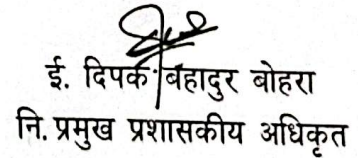 ई. दिपक बहादुर बोहरा
नि. प्रमुख प्रशासकीय अधिकृत